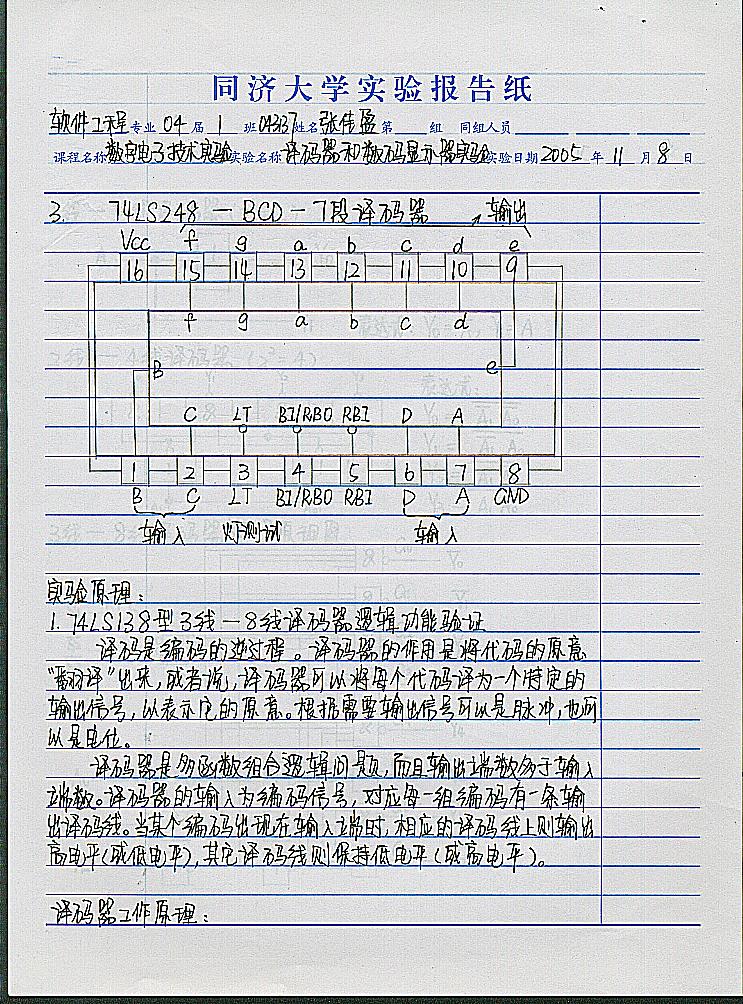 同济大学实验报告纸
软件工程专业 04 届 1 班 04337 姓名 张伟盈 第 组 同组人员
课程名称 数字电子技术实验 实验名称 译码器和数码显示器实验 实验日期 2005 年 11 月 8 日
3. 74LS248－BCD－7段译码器 输出
Vcc f g a b c d e
16 15 14 13 12 11 10 9
f g a b c d
B e
C LT BI/RBO RBI D A
1 2 3 4 5 6 7 8
B C LT BI/RBO RBI D A GND
输入 灯测试 输入
实验原理：
1.74LS138型3线－8线译码器逻辑功能验证
译码是编码的逆过程。译码器的作用是将代码的原意
“翻译”出来，或者说，译码器可以将每个代码译为一个特定的
输出信号，以表示它的原意。根据需要输出信号可以是脉冲，也可
以是电位。
译码器是多函数组合逻辑问题，而且输出端数多于输入
端数。译码器的输入为编码信号，对应每一组编码有一条输
出译码线。当某个编码出现在输入端时，相应的译码线上则输出
高电平（或低电平），其它译码线则保持低电平（或高电平）。
译码器工作原理：